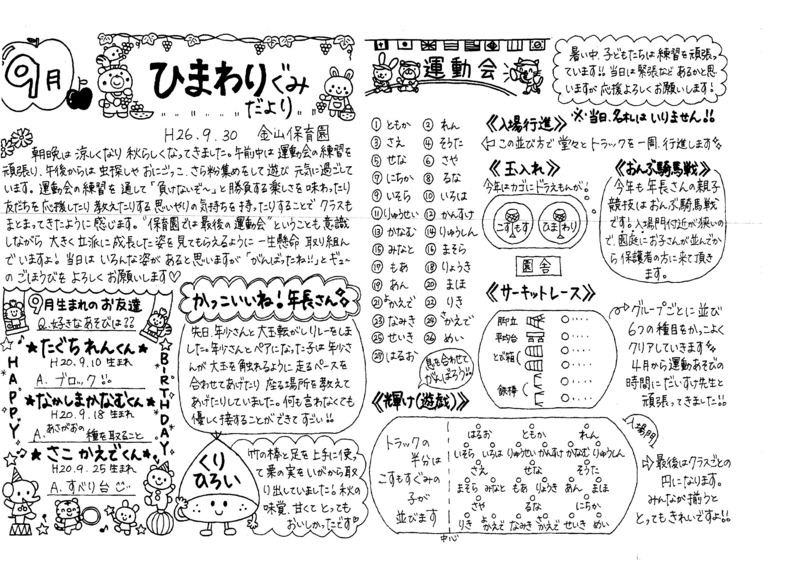 9月
ひまわりぐみ
だより
H26.9.30 金山保育園
朝晩は涼しくなり秋らしくなってきました。午前中は運動会の練習を
頑張り、午後からは虫探しやおにごっこ、さら粉集めをして遊び元気に過ごして
います。運動会の練習を通して「負けないぞ〜」と勝負する楽しさを味わったり
友だちを応援したり教えたりする思いやりの気持ちを持ったりすることでクラスも
まとまってきたように感じます。“保育園では最後の運動会”ということも意識
しながら大きく立派に成長した姿を見てもらえるように一生懸命取り組ん
でいますよ！当日はいろんな姿があると思いますが「がんばったね!!」とギュー
のごほうびをよろしくお願いします♡
9月生まれのお友達
Q.好きなあそびは??
HAPPY
BIRTHDAY
★たぐちれんくん★
H20.9.10生まれ
A.ブロック!!
★なかしまかなむくん★
H20.9.18生まれ
A.あさがおの種を取ること
★さこかえでくん★
H20.9.25生まれ
A.すべり台
かっこいいね！年長さん
先日、年少さんと大玉転がしリレーをしま
した。年少さんとペアになった子は年少さ
んが大玉を触れるように走るペースを
合わせてあげたり座る場所を教えて
あげたりしていました。何も言わなくても
優しく接することができてすごい!!
くり
ひろい
竹の棒と足を上手に使っ
て栗の実をいがから取
り出していました！秋の
味覚、甘くてとっても
おいしかったです♡
運動会
暑い中、子どもたちは練習を頑張っ
ています!!当日は緊張などあるかと思
いますが応援よろしくお願いします！
①ともか ②れん
③さえ ④そうた
⑤せな ⑥さや
⑦にちか ⑧るな
⑨いそら ⑩いろは
⑪りゅうせい ⑫かんすけ
⑬かなむ ⑭りゅうしん
⑮みなと ⑯まそら
⑰もあ ⑱りょうき
⑲あん ⑳まほ
㉑よかえで ㉒りき
㉓なみき ㉔さかえで
㉕せいき ㉖めい
㉗はるお
息を合わせて
がんばろう!!
《入場行進》 ※当日、名札はいりません!!
この並び方で堂々とトラックを一周、行進します
《玉入れ》
今年はカゴにドラえもんが！
こすもす
ひまわり
園舎
《おんぶ騎馬戦》
今年も年長さんの親子
競技はおんぶ騎馬戦
です！入場門付近が狭いの
で、園庭にお子さんが並んでから
保護者の方に来て頂き
ます。
《サーキットレース》
脚立
平均台
とび箱
鉄棒
グループごとに並び
6つの種目をかっこよく
クリアしていきます
4月から運動あそびの
時間にだいすけ先生と
頑張ってきました!!
《輝け(遊戯)》
トラックの
半分は
こすもすぐみの
子が
並びます
はるお ともか れん
いそら いろは りゅうせい かんすけ かなむ りゅうしん
さえ せな そうた
まそら みなと もあ りょうき あん まほ
さや るな にちか
りき よかえで なみき さかえで せいき めい
中心
入場門
最後はクラスごとの
円になります。
みんなが揃うと
とってもきれいですよ!!